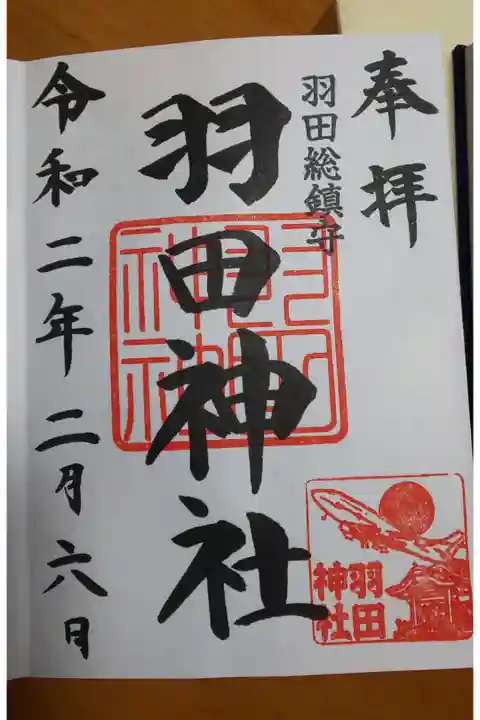 奉拝
羽田総鎮守
羽田神社
令和二年二月六日
羽田神社
羽田
神社